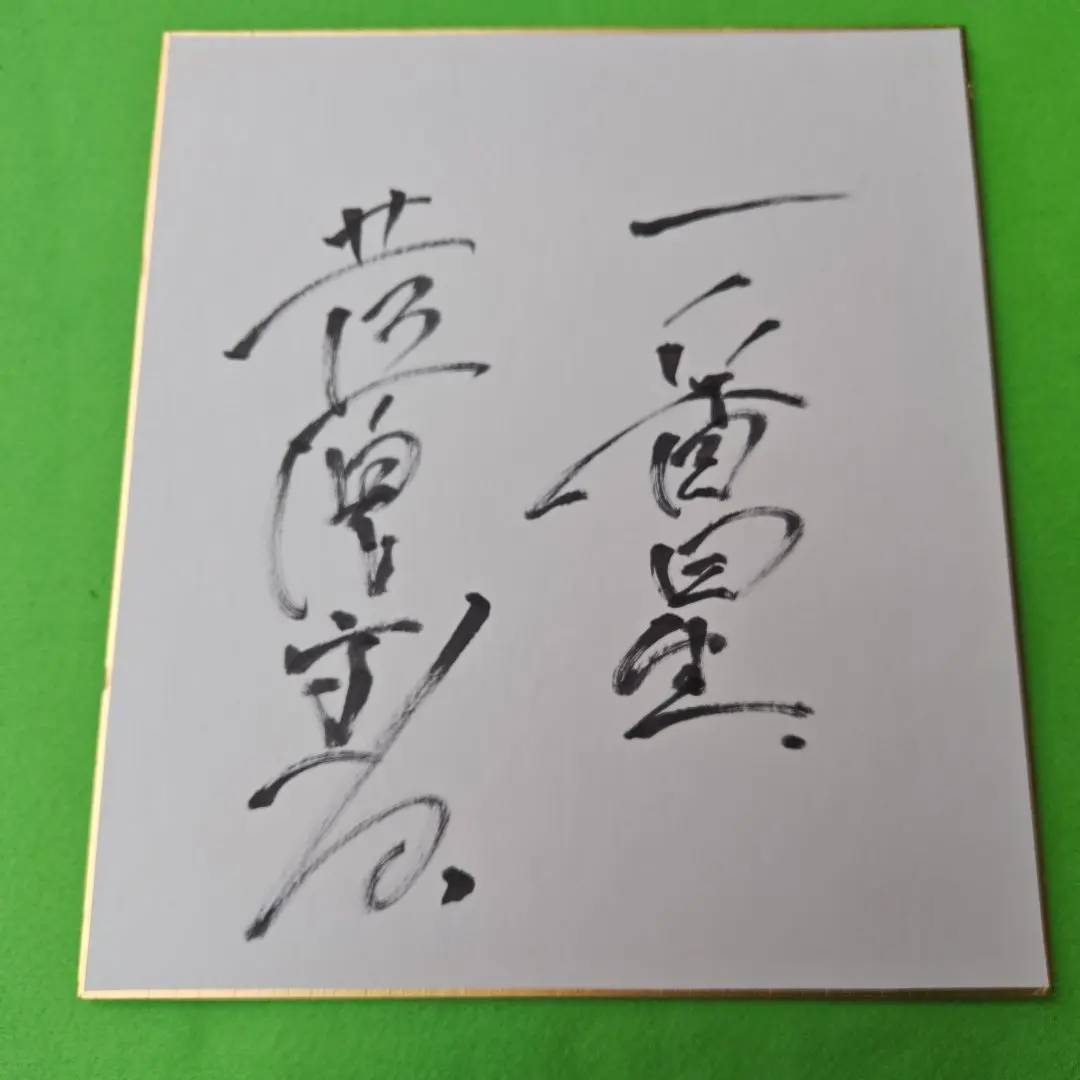 一番星.
菅原文太